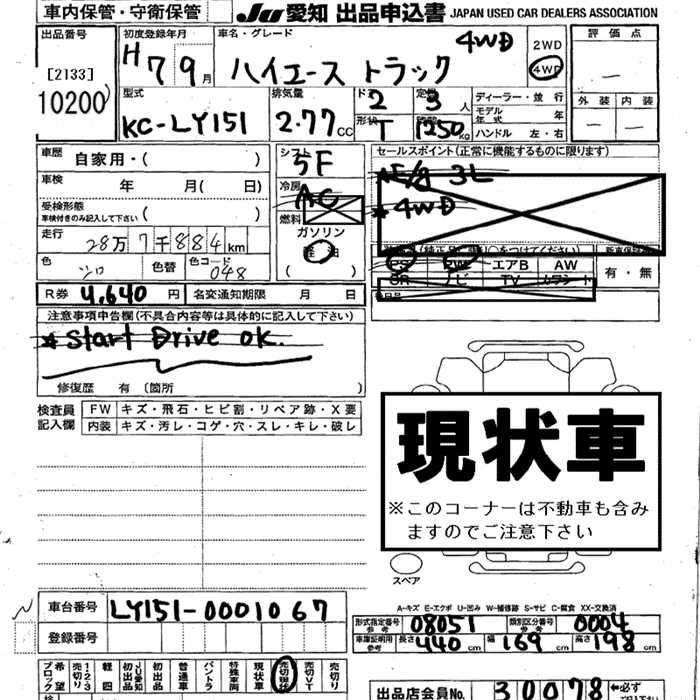 車内保管・守衛保管 JU 愛知 出品申込書 JAPAN USED CAR DEALERS ASSOCIATION
出品番号 初度登録年月 車名・グレード 4WD 2WD 評価点
[2133] H7 9月 ハイエース トラック 4WD —
10200 型式 排気量 ドア 定員 ディーラー・並行 外装 内装
2 3人 モデル年式 年
KC-LY151 2.77CC 形状 T 1250kg ハンドル 左・右 — —
車歴 自家用・( ) シフト 5F セールスポイント(正常に機能するものに限ります)
車検 年 月( 日) 冷房 AC *E/g 3L
受検形態 ( ) *4WD
車検付きのみ記入して下さい 燃料
走行 28万7千884km ガソリン
軽油
色 シロ 色替 色コード 048 ( ) PS PW エアB AW 有・無
SR ナビ TV カワシート
R券 4,640円 名変通知期限 月 日
注意事項申告欄(不具合内容等は具体的に記入して下さい)
*Start Drive ok.
修復歴 有(箇所
検査員 FW キズ・飛石・ヒビ割・リペア跡・X要
記入欄 内装 キズ・汚レ・コゲ・穴・スレ・キレ・破レ
現状車
※このコーナーは不動車も含み
ますのでご注意下さい
スペア
A-キズ E-エクボ U-凹み W-補修跡 S-サビ C-腐食 XX-交換済
車台番号 LY151-0001067
形式指定番号 参考 08051 類別区分番号 参考 0004
登録番号 車庫証明用 参考 長さ 440cm 幅 169cm 高さ 198cm
希望ブロック 売切り 1・2・3 軽四 初出品 JU愛知 初出品 普通車 バントラ 特殊車両 現状車 売切現状 売切VT 売切り
出品店会員No. 30078 ←必ず